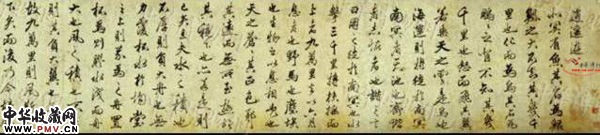 逍遥遊
北冥有魚其名為鯤
鯤之大不知其幾千
里也化而為鳥其名為
鵬之背不知其幾
千里也怒而飛其翼
若垂天之雲是鳥也
海運則將徙於南冥
南冥者天池也齊諧
者志怪者也諧之言
曰鵬之徙於南冥也水
擊三千里摶扶搖而
上者九萬里去以六月
息者也野馬也塵埃
也生物之以息相吹也
天之蒼蒼其正色邪
其遠而無所至極邪
其視下也亦若是則
已矣且夫水之積也
不厚則負大舟也無
力覆杯水於坳堂
之上則芥為之舟置
杯焉則膠水淺而舟
大也風之積也不
則其負大翼也
故九萬里則風
下矣而後乃今
中华收藏网
www.PMV.cn